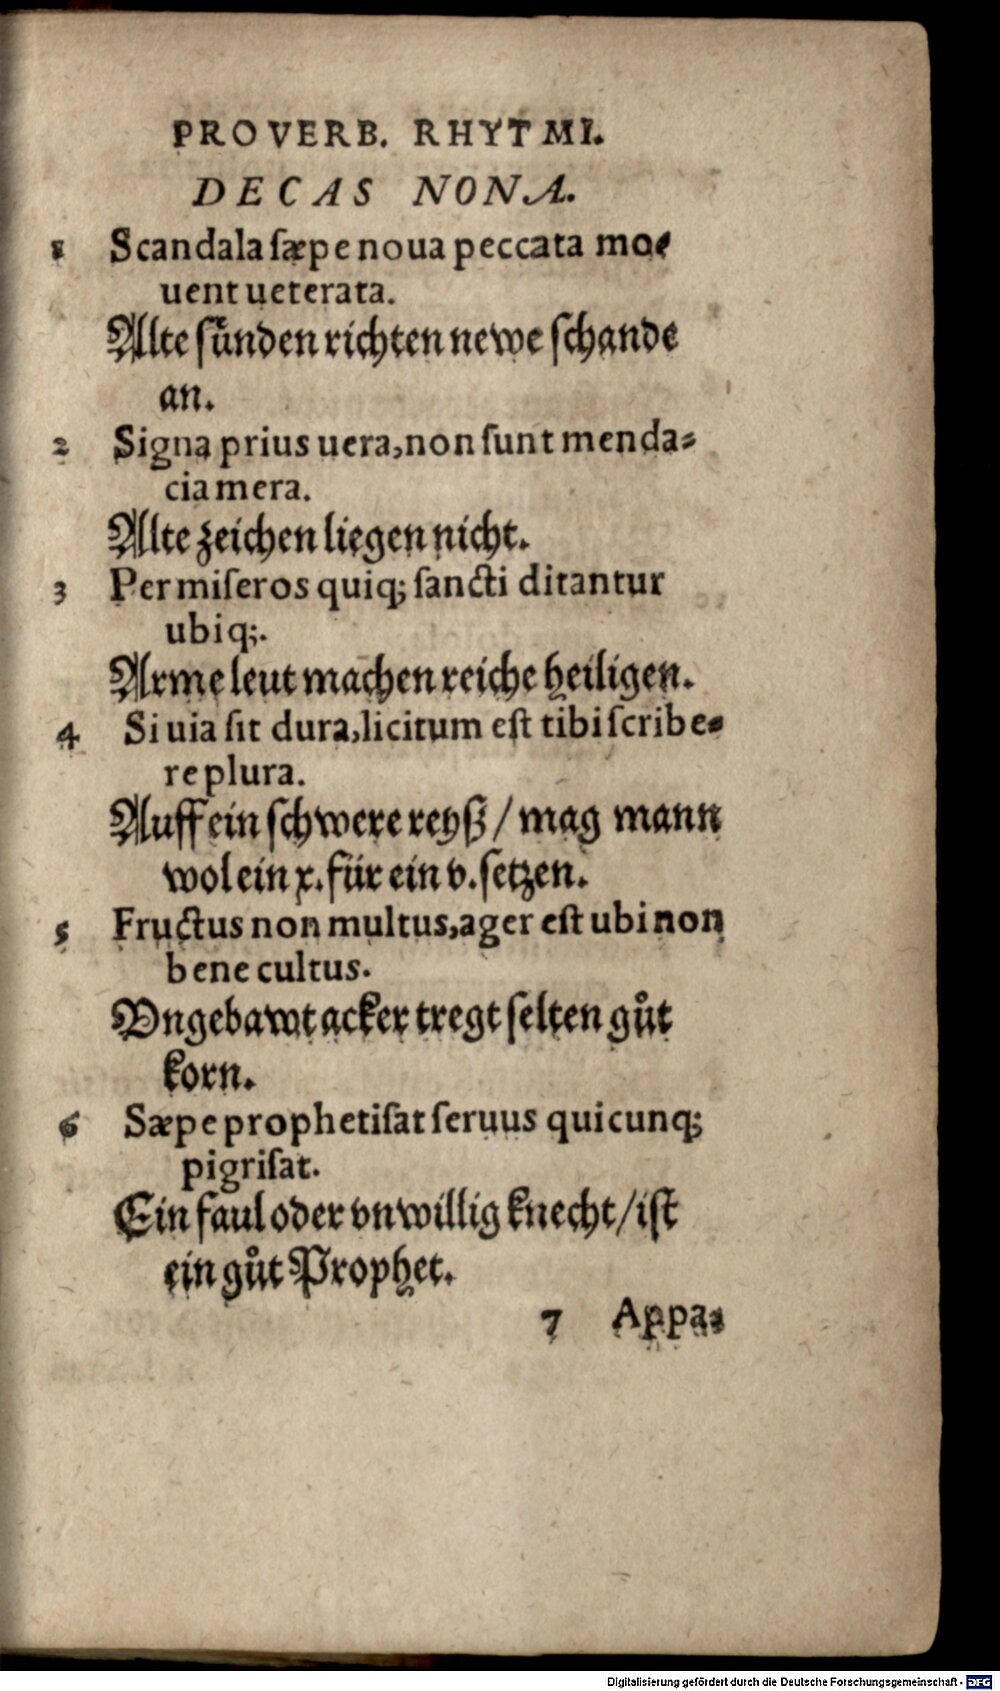 PROVERB. RHYTMI.
DECAS NONA.
1 Scandala sæpe noua peccata mo-
uent ueterata.
Alte sünden richten newe schande
an.
2 Signa prius uera, non sunt menda-
cia mera.
Alte zeichen liegen nicht.
3 Per miseros quiq; sancti ditantur
ubiq;.
Arme leut machen reiche heiligen.
4 Si uia sit dura, licitum est tibi scribe-
re plura.
Auff ein schwere reyß / mag mann
wol ein x. für ein v. setzen.
5 Fructus non multus, ager est ubi non
bene cultus.
Vngebawt acker tregt selten gůt
korn.
6 Sæpe prophetisat seruus quicunq;
pigrisat.
Ein faul oder vnwillig knecht / ist
ein gůt Prophet.
7 Appa-
Digitalisierung gefördert durch die Deutsche Forschungsgemeinschaft - DFG